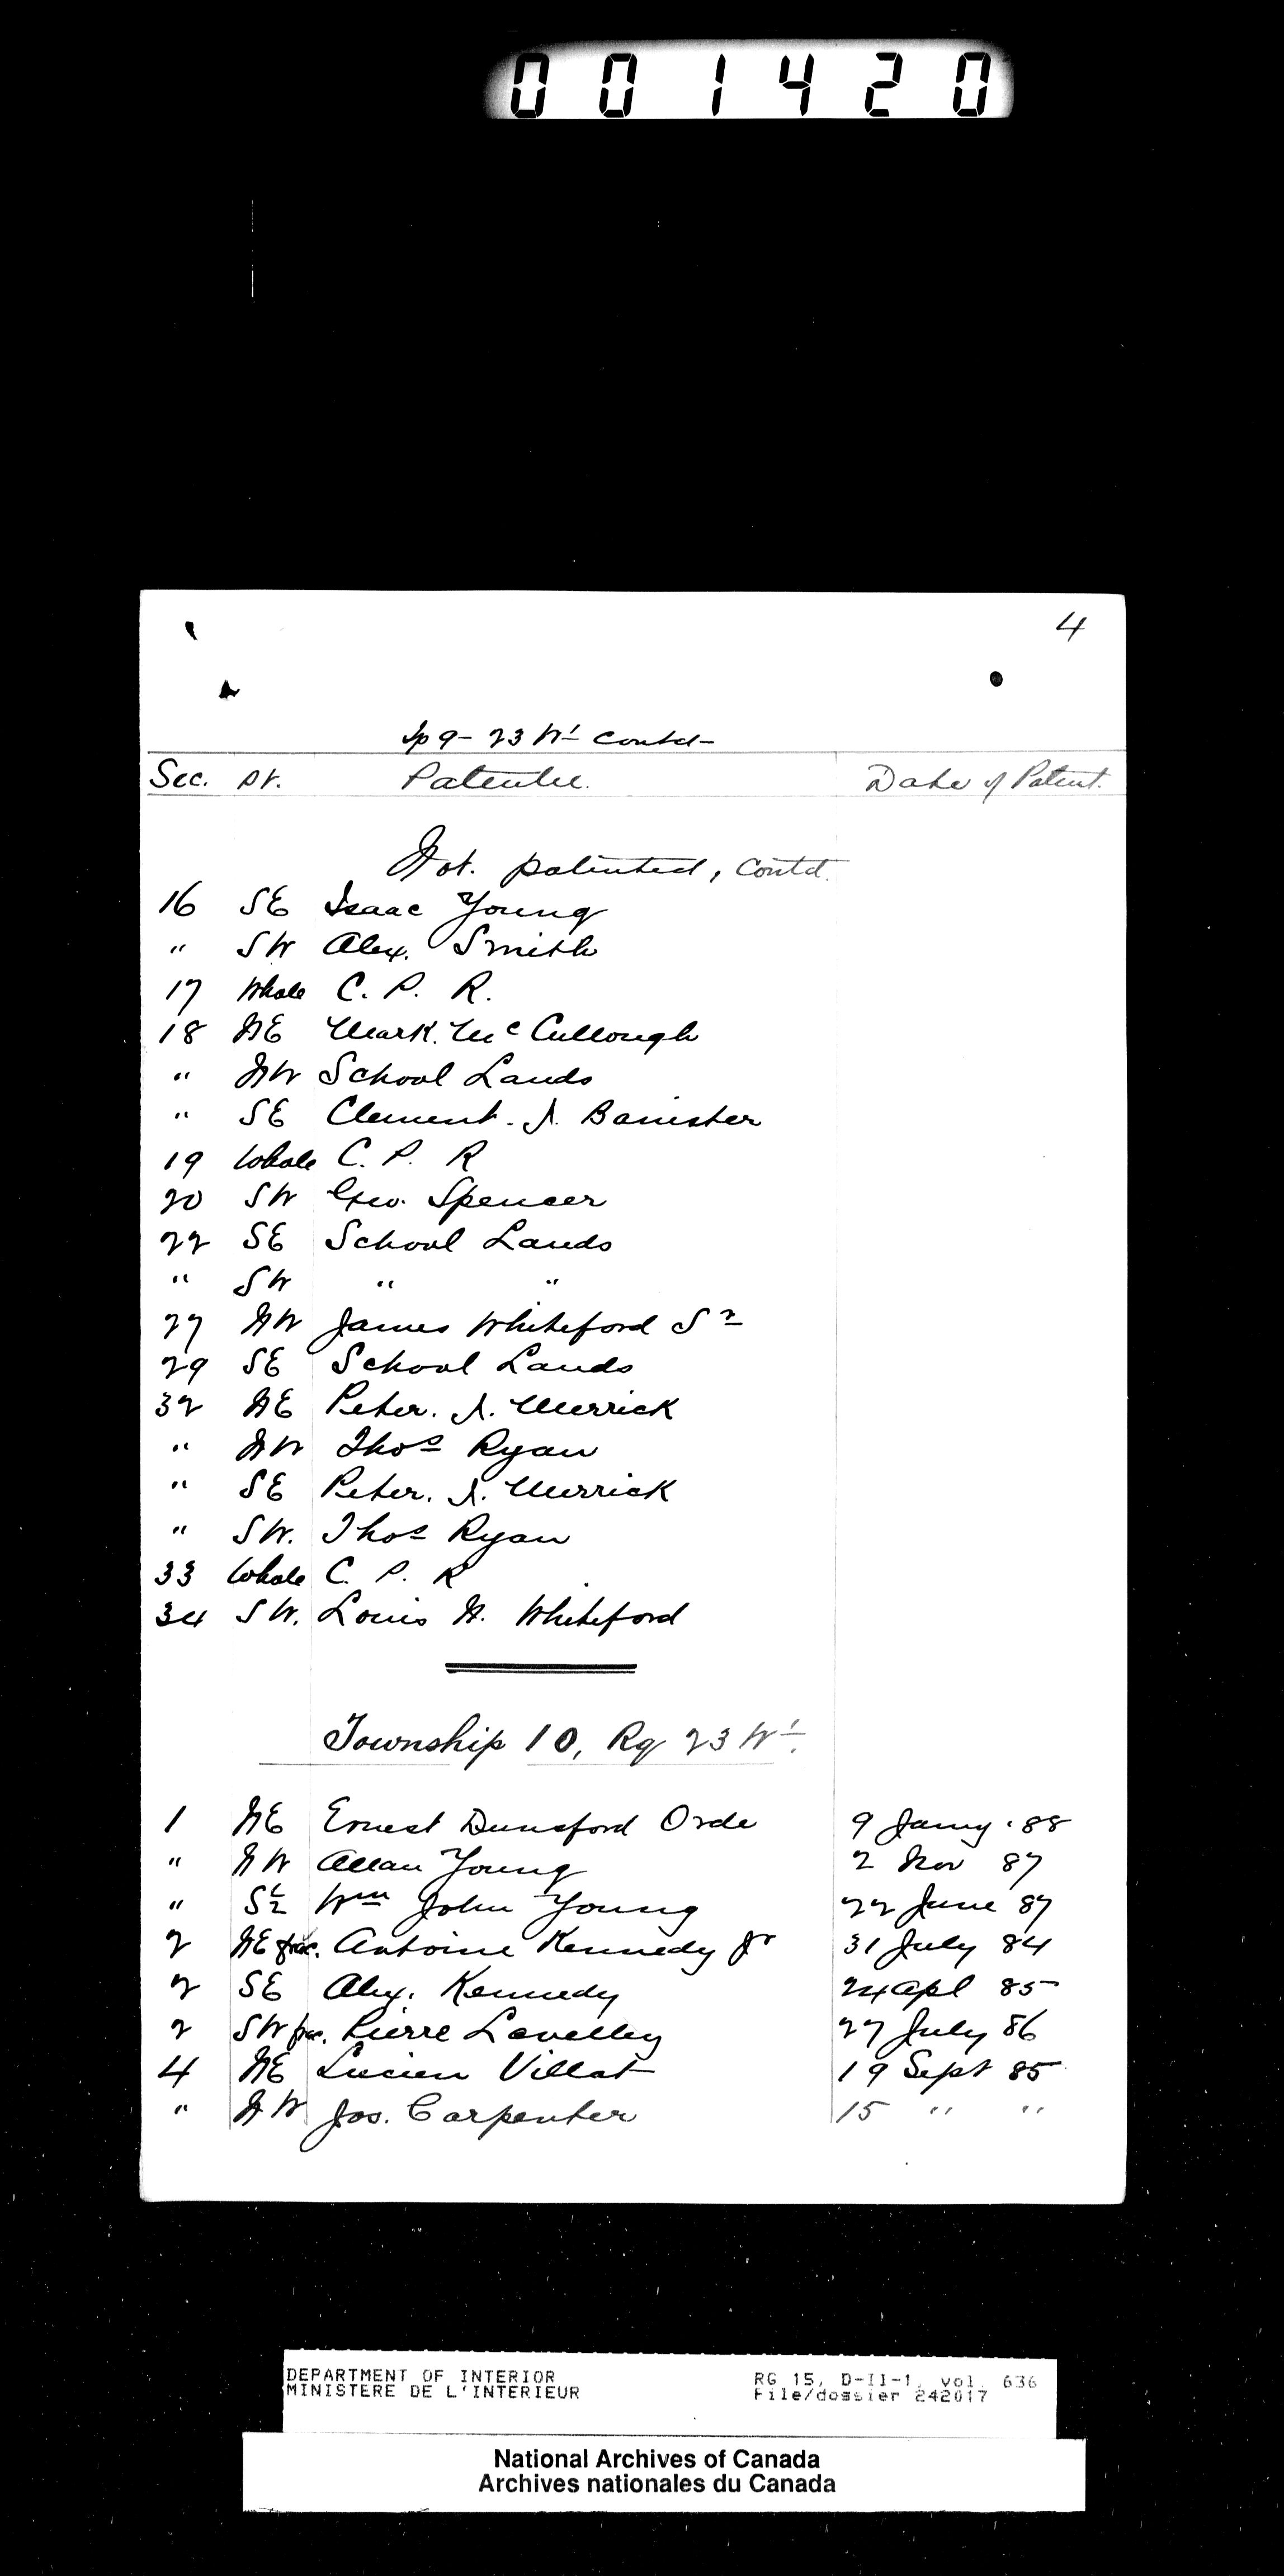 001420
4
Tp 9 - 23 W1 contd -
Sec. Pt. Patentee. Date of Patent.
Not. patented, contd.
16 SE Isaac Young
" SW Alex. Smith
17 Whole C. P. R.
18 NE Mark. McCullough
" NW School Lands
" SE Clement. A. Banister
19 Whole C. P. R
20 SW Geo. Spencer
22 SE School Lands
" SW " "
27 NW James Whiteford Sr
29 SE School Lands
32 NE Peter. A. Merrick
" NW Thos Ryan
" SE Peter. A. Merrick
" SW. Thos Ryan
33 Whole C. P. R
34 SW. Louis N. Whiteford
Township 10, Rg 23 W1.
1 NE Ernest Dunsford Orde 9 Jany. 88
" NW Allan Young 2 Nov 87
" S½ Wm John Young 22 June 87
2 NE frac. Antoine Kennedy Jr 31 July 84
2 SE Alex. Kennedy 24 Apl 85
2 SW frac. Pierre Levelley 27 July 86
4 NE Lucien Villat 19 Sept 85
" NW Jos. Carpenter 15 " "
DEPARTMENT OF INTERIOR RG 15, D-II-1, vol. 636
MINISTERE DE L'INTERIEUR File/dossier 242017
National Archives of Canada
Archives nationales du Canada